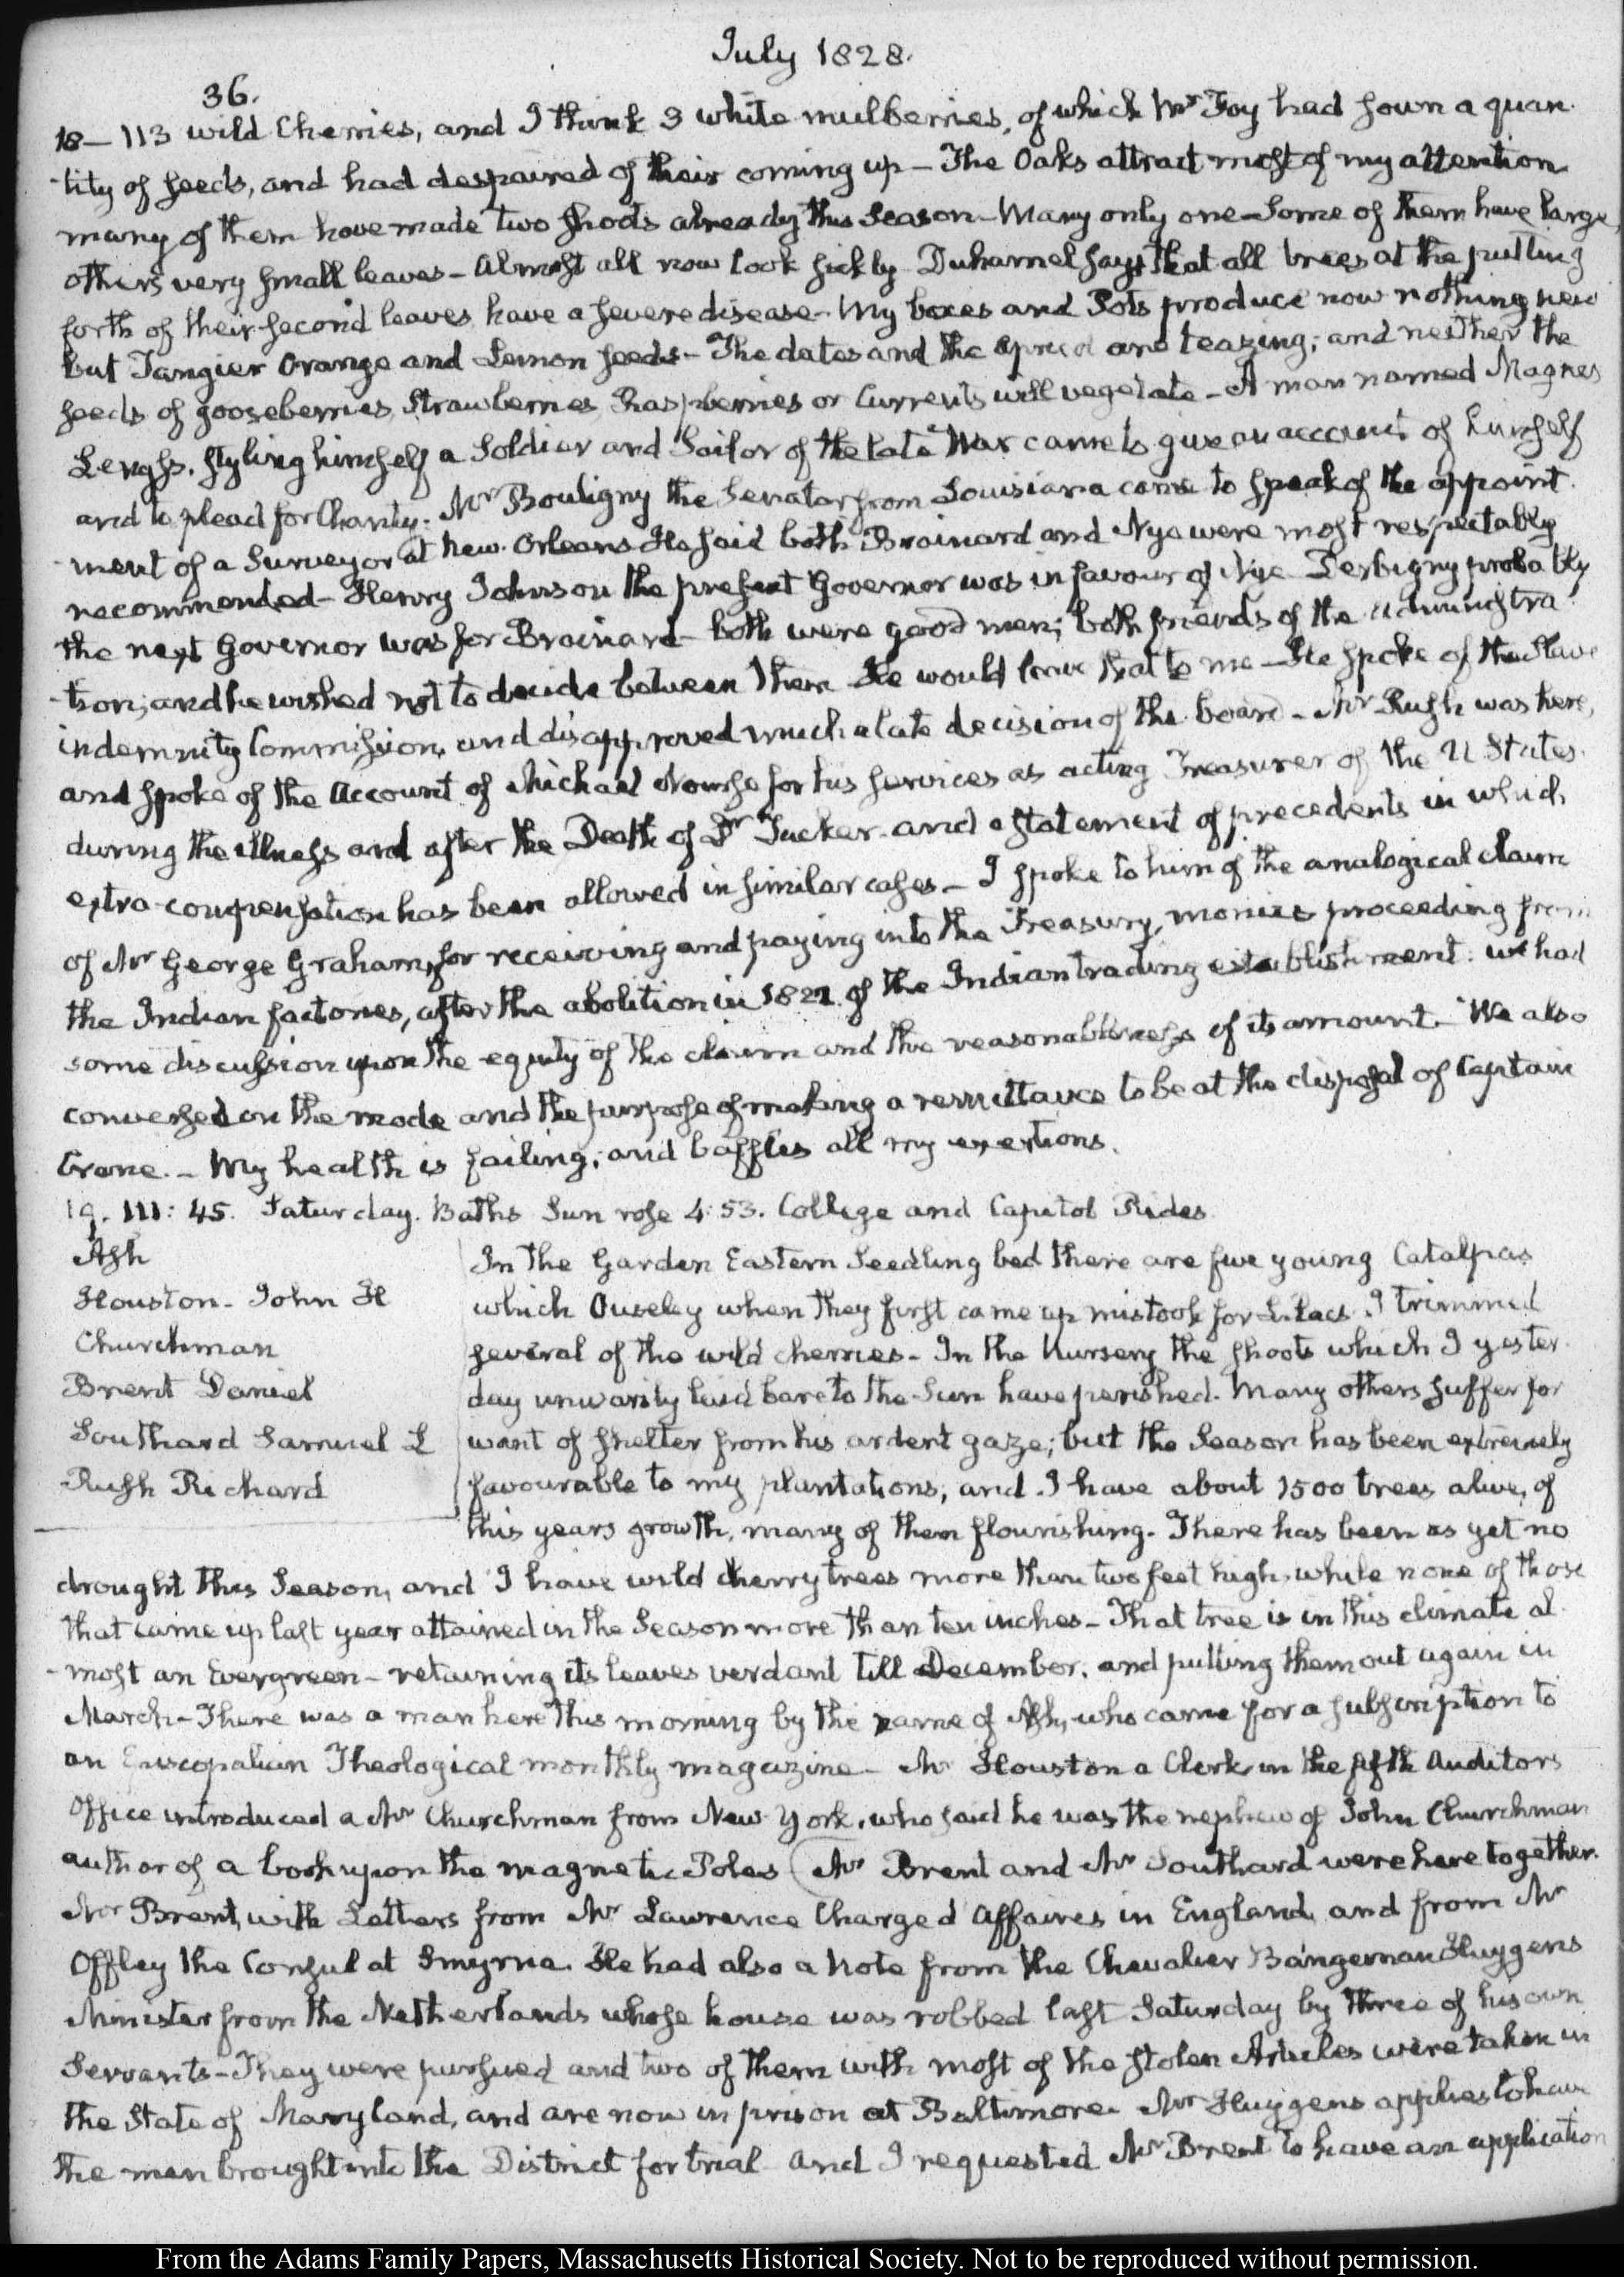 July 1828.
36.
18 — 113 wild Cherries, and I think 3 white mulberries, of which Mr Foy had sown a quan
-tity of seeds, and had despaired of their coming up — The Oaks attract most of my attention
many of them have made two shoots already this Season — Many only one — Some of them have large,
others very small leaves — Almost all now look sickly Duhamel says that all trees at the putting
forth of their second leaves have a severe disease — My boxes and Pots produce now nothing new
but Tangier Orange and Lemon seeds — The dates and the are teazing; and neither the
seeds of gooseberries Strawberries Raspberries or Currents will vegetate — A man named Magnes
styling himself a Soldier and Sailor of the late War came to give an account of himself
and to plead for Charity. Mr Bouligny the Senator from Louisiana came to speak of the appoint
-ment of a Surveyor at New Orleans He said both Brainard and Nye were most respectably
recommended — Henry Johnson the present Governor was in favour of Nye Derbigny probably
the next Governor was for Brainard — both were good men; both friends of the administra
-tion; and he wished not to decide between them He would leave that to me — He spoke of the Slave
indemnity Commission, and disapproved much a late decision of the board — Mr Rush was here,
and spoke of the Account of Michael Nourse for his services as acting Treasurer of the U States
during the illness and after the Death of Dr Tucker and a statement of precedents in which
extra compensation has been allowed in similar cases — I spoke to him of the analogical claim
of Mr George Graham, for receiving and paying into the Treasury, monies proceeding from
the Indian factories, after the abolition in 1822 of the Indian trading establishment: we had
some discussion upon the equity of the claim and the reasonableness of its amount. We also
conversed on the mode and the purpose of making a remittance to be at the disposal of Captain
Crane. — My health is failing; and baffles all my exertions.
19. III: 45. Saturday. Baths Sun rose 4:53. College and Capitol Rides
Ash
Houston — John H
Churchman
Brent Daniel
Southard Samuel L
Rush Richard
In the Garden Eastern Seedling bed there are five young Catalpas
which Ouseley when they first came up mistook for Lilacs. I trimmed
several of the wild cherries — In the Nursery the shoots which I yester
day unwarily laid bare to the Sun have perished. Many others suffer for
want of shelter from his ardent gaze; but the Season has been extremely
favourable to my plantations, and I have about 1500 trees alive, of
this years growth, many of them flourishing. There has been as yet no
drought this Season, and I have wild cherry trees more than two feet high, while none of those
that came up last year attained in the Season more than ten inches — That tree is in this climate al
-most an Evergreen — retaining its leaves verdant till December, and putting them out again in
March — There was a man here this morning by the name of Ash, who came for a subscription to
an Episcopalian Theological monthly magazine — Mr Houston a Clerk in the fifth Auditors
Office introduced a Mr Churchman from New York, who said he was the nephew of John Churchman
author of a book upon the magnetic Poles (Mr Brent and Mr Southard were here together.
Mr Brent, with Letters from Mr Lawrence Charge d'Affaires in England, and from Mr
Offley the Consul at Smyrna. He had also a Note from the Chevalier Bangeman Huygens
Minister from the Netherlands whose house was robbed last Saturday by three of his own
Servants — They were pursued and two of them with most of the stolen Articles were taken in
the State of Maryland, and are now in prison at Baltimore. Mr Huygens applies to have
the men brought into the District for trial and I requested Mr Brent to have an application
From the Adams Family Papers, Massachusetts Historical Society. Not to be reproduced without permission.